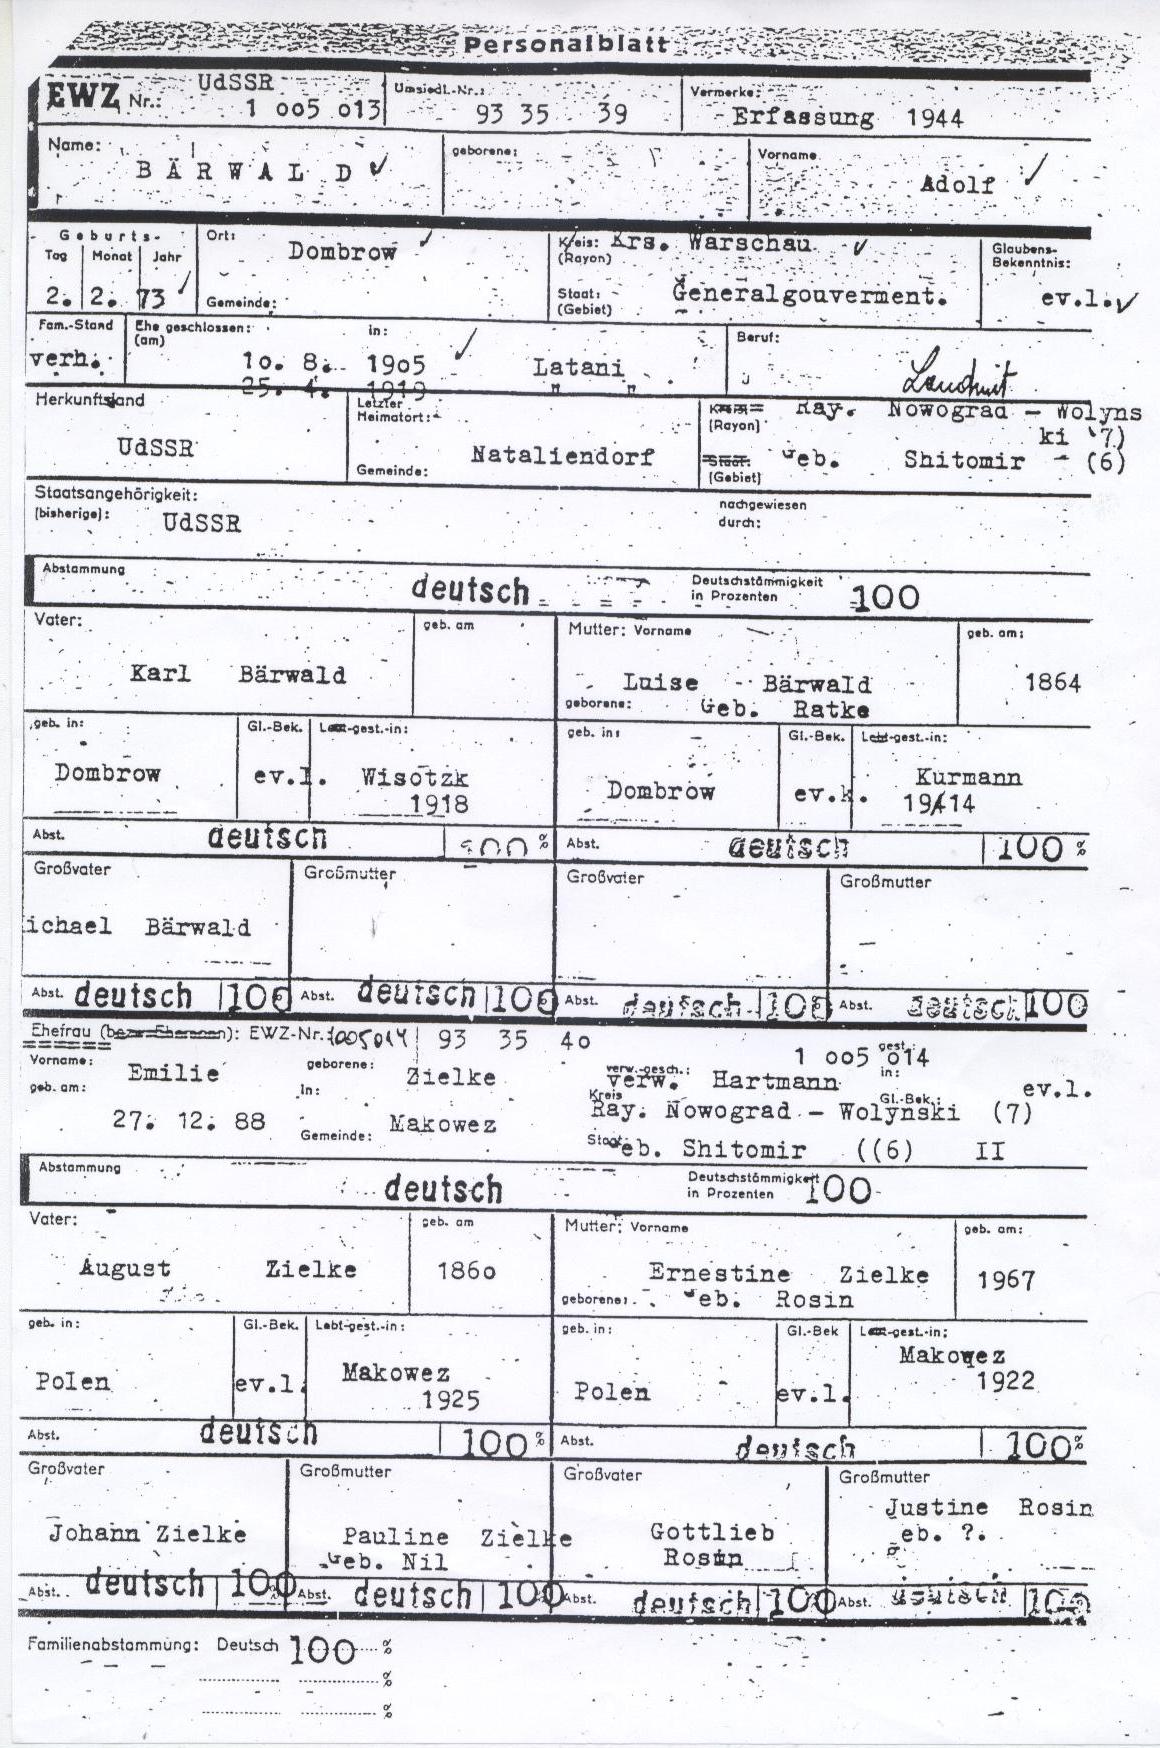 Personalblatt
EWZ Nr.: UdSSR 1 005 013 Umsiedl.-Nr.: 93 35 39 Vermerke: Erfassung 1944
Name: BÄRWALD geborene: Vorname Adolf
Geburts- Ort: Dombrow Kreis: Krs. Warschau Glaubens-
Tag Monat Jahr (Rayon) Bekenntnis:
2. 2. 73 Gemeinde: Staat: Generalgouverment. ev.l.
(Gebiet)
Fam.-Stand Ehe geschlossen: in: Beruf:
(am)
verh. 10. 8. 1905 Latani Landwirt
25. 4. 1919 " "
Herkunftsland Letzter Kreis= Ray. Nowograd - Wolyns
Heimatort: (Rayon) ki 7)
UdSSR Nataliendorf Staat: Geb. Shitomir - (6)
Gemeinde: (Gebiet)
Staatsangehörigkeit: nachgewiesen
(bisherige): UdSSR durch:
Abstammung deutsch Deutschstämmigkeit 100
in Prozenten
Vater: geb. am Mutter: Vorname geb. am:
Karl Bärwald Luise Bärwald 1864
geborene: Geb. Ratke
geb. in: Gl.-Bek. Lebt-gest.-in: geb. in: Gl.-Bek. Lebt-gest.-in:
Dombrow ev.l. Wisotzk Dombrow ev.k. Kurmann
1918 1914
Abst. deutsch 100 % Abst. deutsch 100 %
Großvater Großmutter Großvater Großmutter
ichael Bärwald
Abst. deutsch 100 Abst. deutsch 100 Abst. deutsch 100 Abst. deutsch 100
Ehefrau (bezw. Ehemann): EWZ-Nr. 1005014 93 35 40 1 005 014 gest.
Vorname: Emilie geborene: Zielke verw.-gesch.: verw. Hartmann in: ev.l.
geb. am: in: Kreis Ray. Nowograd - Wolynski (7) Gl.-Bek.:
27. 12. 88 Gemeinde: Makowez Staat eb. Shitomir ((6) II
Abstammung deutsch Deutschstämmigkeit 100
in Prozenten
Vater: geb. am Mutter: Vorname geb. am:
August Zielke 1860 Ernestine Zielke 1967
geborene: eb. Rosin
geb. in: Gl.-Bek. Lebt-gest.-in: geb. in: Gl.-Bek Lebt-gest.-in:
Polen ev.l. Makowez Polen ev.l. Makowez
1925 1922
Abst. deutsch 100 % Abst. deutsch 100 %
Großvater Großmutter Großvater Großmutter
Johann Zielke Pauline Zielke Gottlieb Justine Rosin
Geb. Nil Rosin eb. ?.
Abst. deutsch 100 Abst. deutsch 100 Abst. deutsch 100 Abst. deutsch 100
Familienabstammung: Deutsch 100 %
%
%